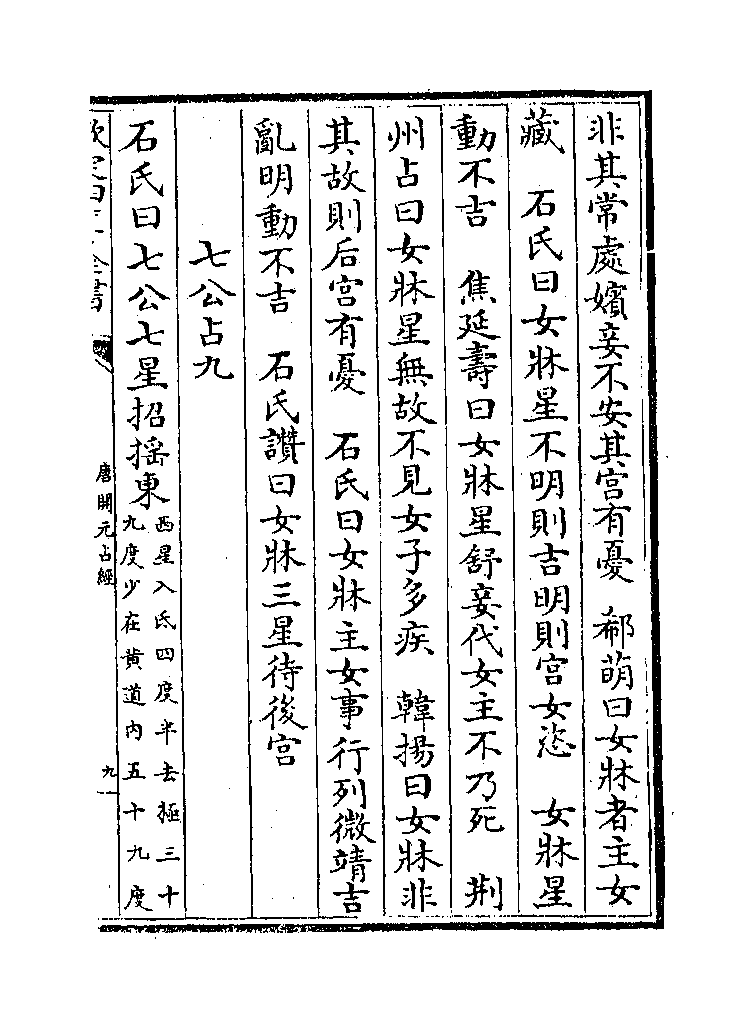 非其常處嬪妾不安其宫有憂　郗萌曰女牀者主女
藏　石氏曰女牀星不明則吉明則宫女恣　女牀星
動不吉　焦延壽曰女牀星舒妾代女主不乃死　荆
州占曰女牀星無故不見女子多疾　韓揚曰女牀非
其故則后宫有憂　石氏曰女牀主女事行列微靖吉
亂明動不吉　石氏讚曰女牀三星待後宫
七公占九
石氏曰七公七星招揺東西星入氐四度半去極三十
九度少在黄道内五十九度
欽定四庫全書
唐開元占經
九